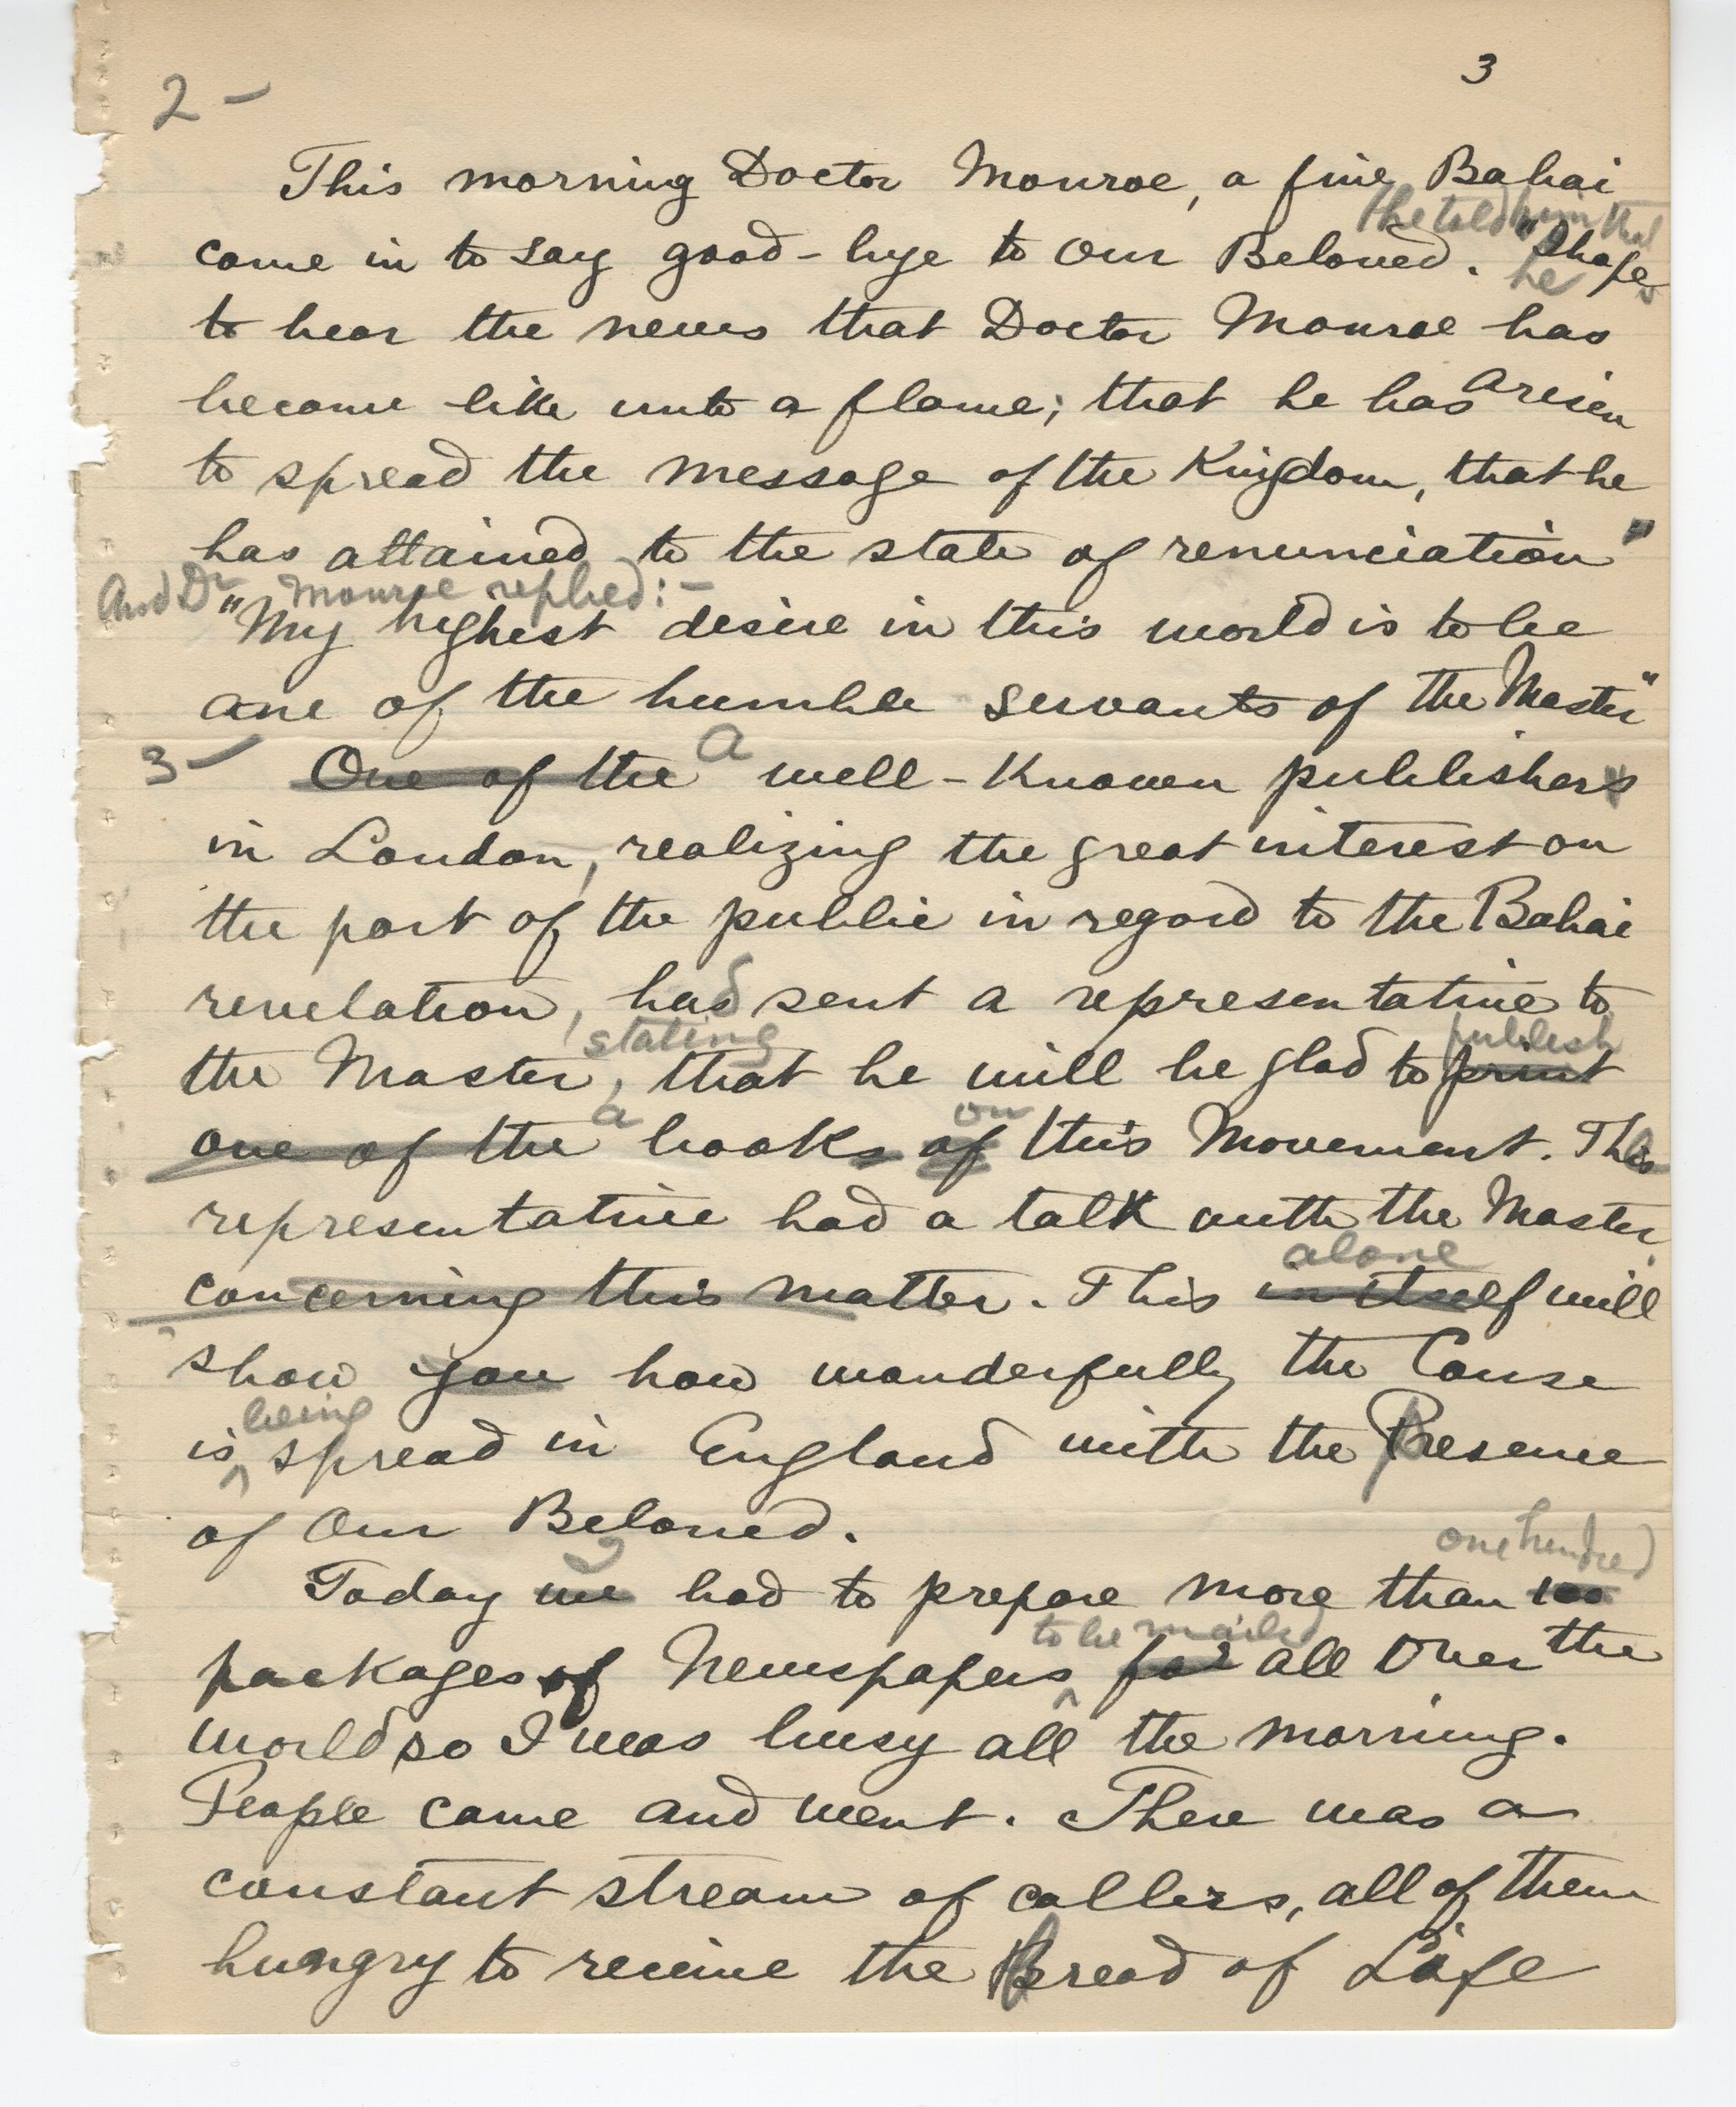 3
2 -
This morning Doctor Monroe, a fine Bahai
He told him that
came in to say good-bye to Our Beloved. "I hope
he
to hear the news that Doctor Monroe has
become like unto a flame; that he has arisen
to spread the message of the Kingdom, that he
has attained to the state of renunciation"
And Dr Monroe replied:-
"My highest desire in this world is to be
one of the humble servants of the Master"
3 - One of the A well-known publishers
in London, realizing the great interest on
the part of the public in regard to the Bahai
revelation, had sent a representative to
stating publish
the Master, that he will be glad to print
a on
one of the books of this Movement. The
representative had a talk with the Master
alone
concerning this matter. This in itself will
show you how wonderfully the Cause
being
is ^ spread in England with the Presence
of Our Beloved.
I one hundred
Today we had to prepare more than 100
to be mailed
packages of Newspapers ^ for all over the
world so I was busy all the morning.
People came and went. There was a
constant stream of callers, all of them
hungry to receive the Bread of Life